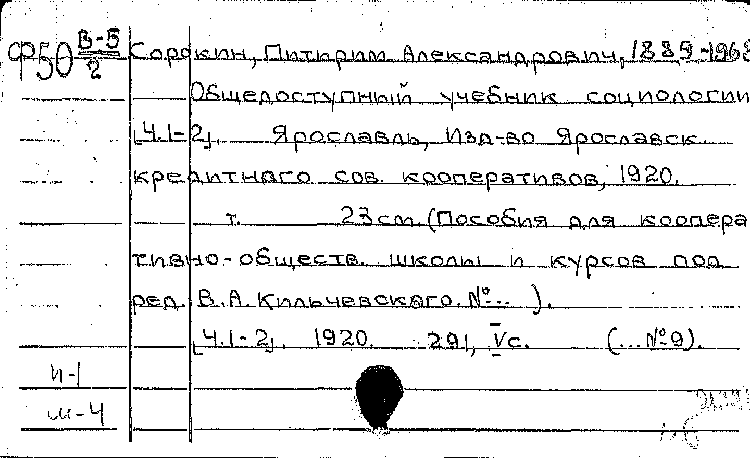 Ф50 В-5/2 Сорокин, Питирим Александрович, 1889-1968
Общедоступный учебник социологии
[Ч.1-2]. Ярославль, Изд-во Ярославск.
кредитнаго соз. кооперативов, 1920.
т. 23см. (Пособия для коопера
тивно-обществ. школы и курсов под
ред. В.А. Кильчевскаго. №... ).
[Ч.1-2]. 1920. 291, Vс. (...№9).
и-1
ш-4